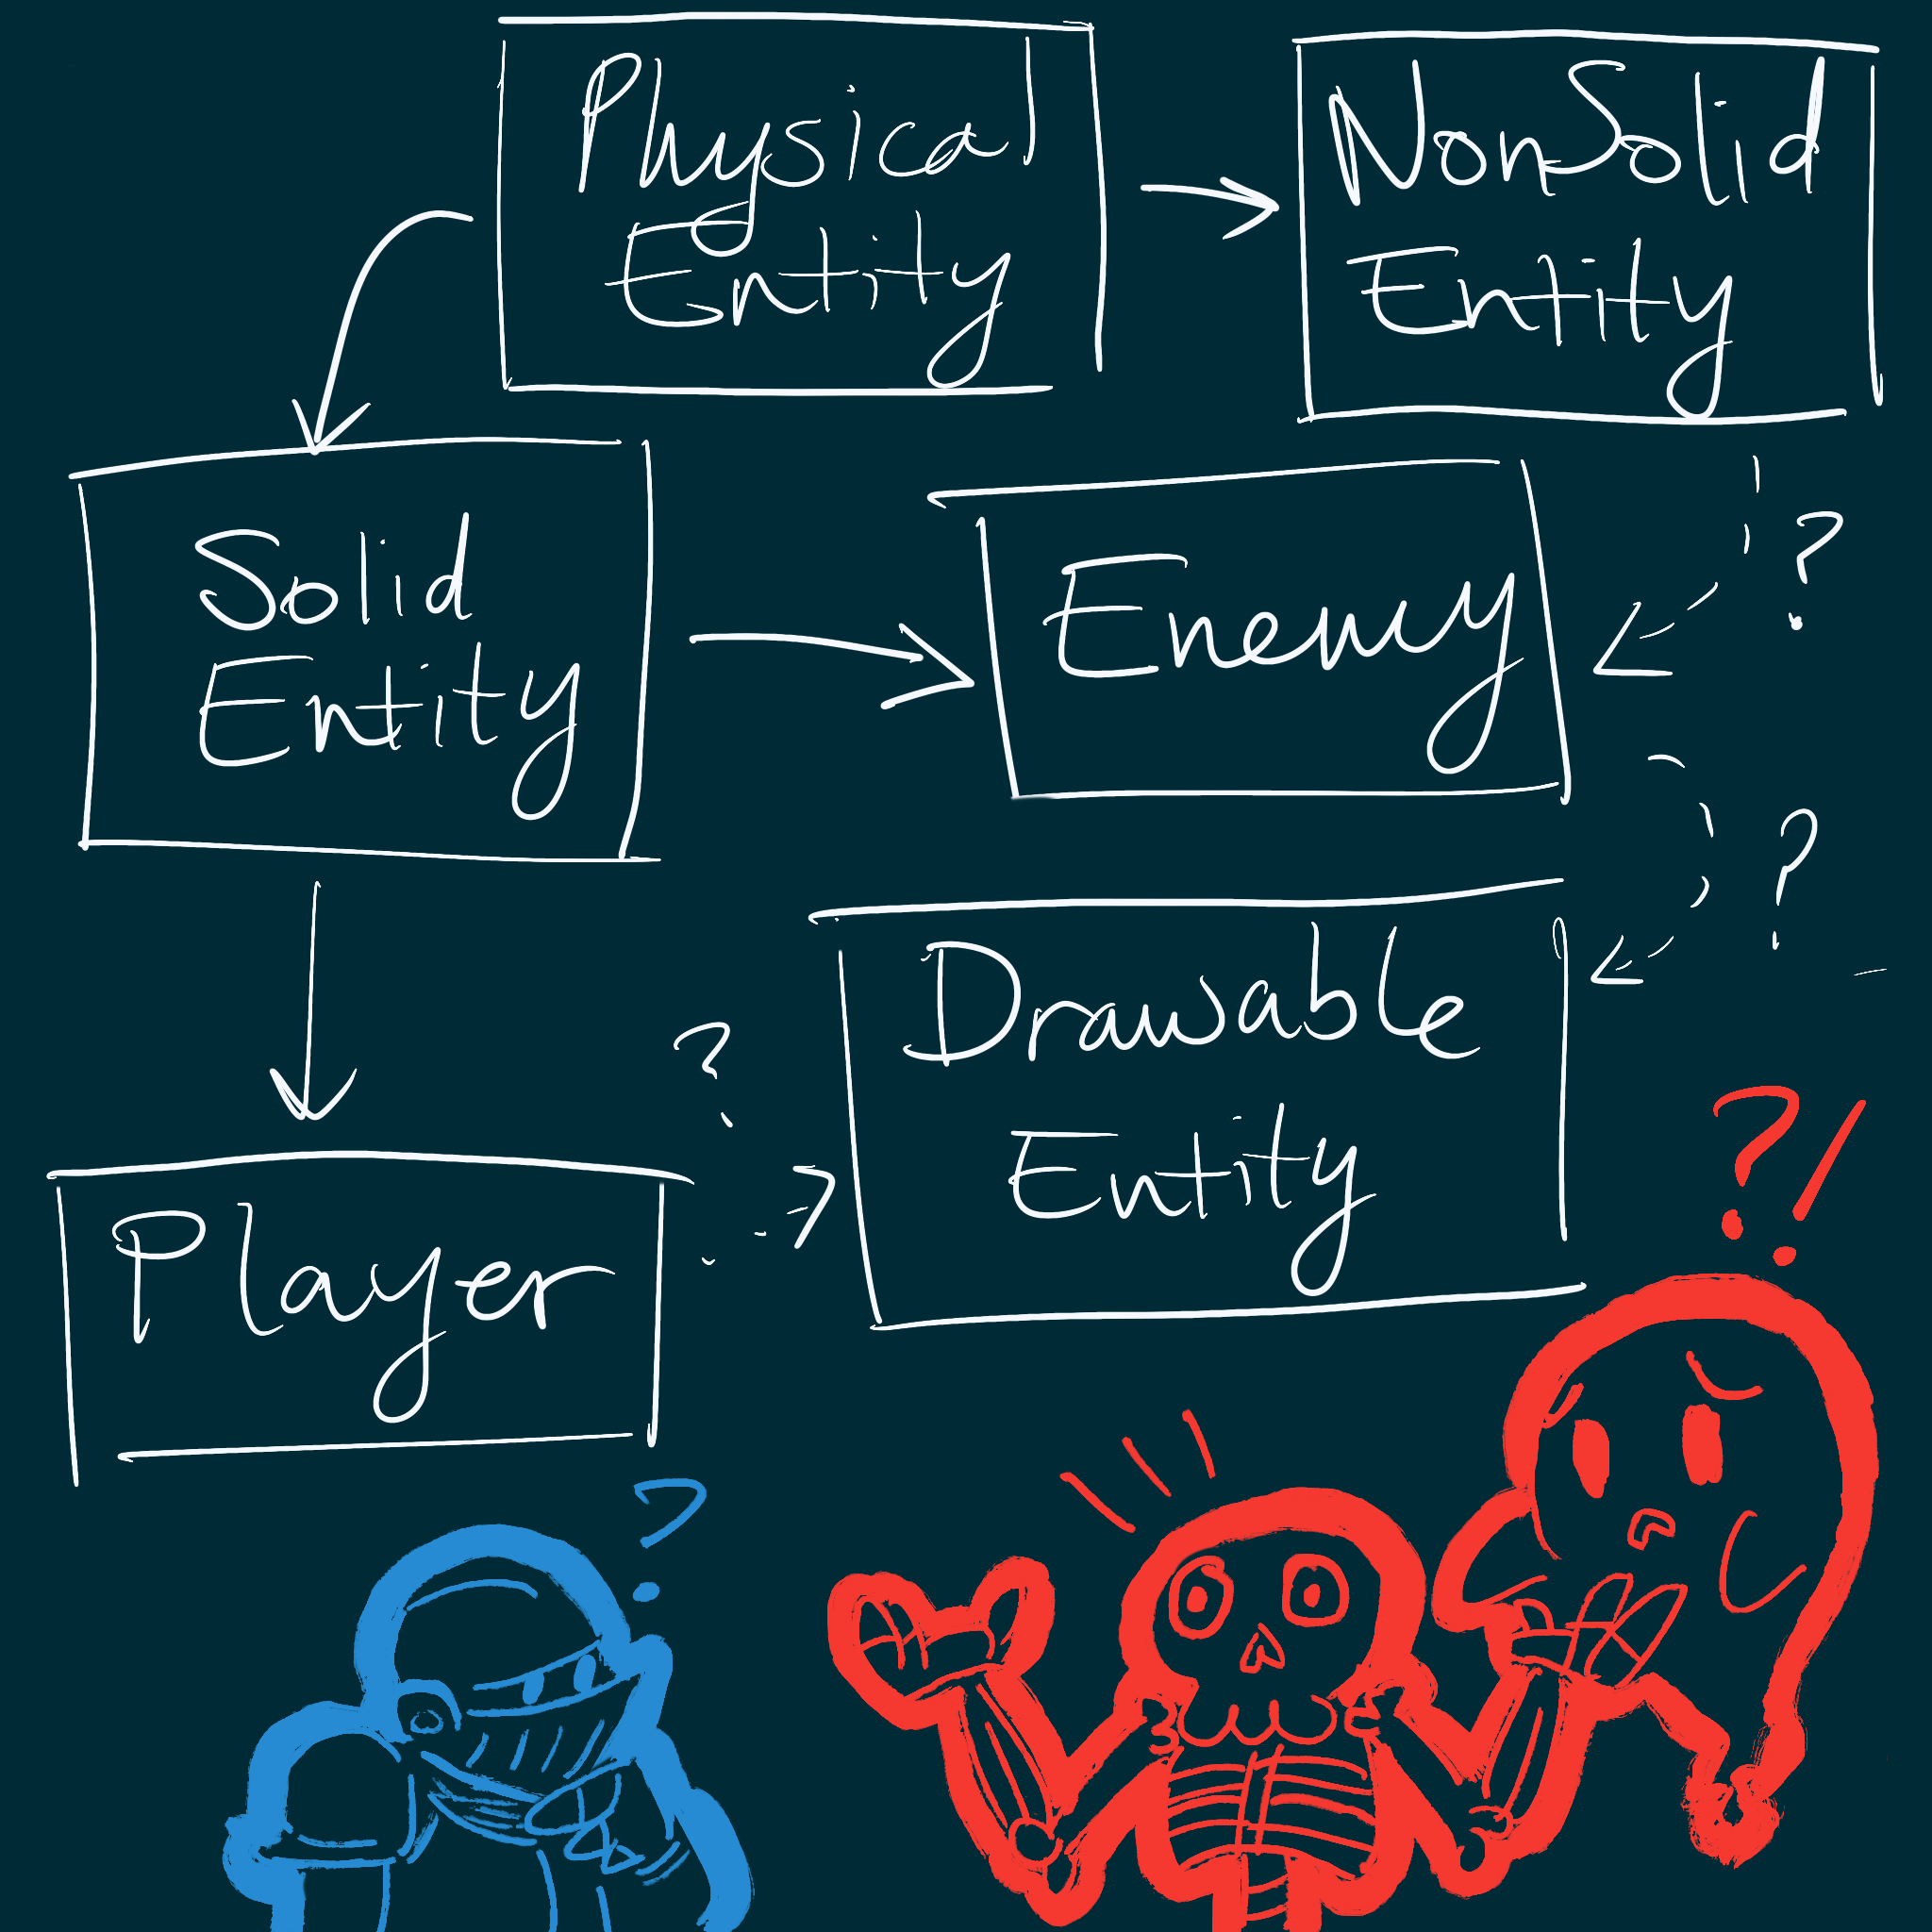 Physical
Entity
NonSolid
Entity
Solid
Entity
Enemy
?
?
Drawable
Entity
?
Player
?!
?